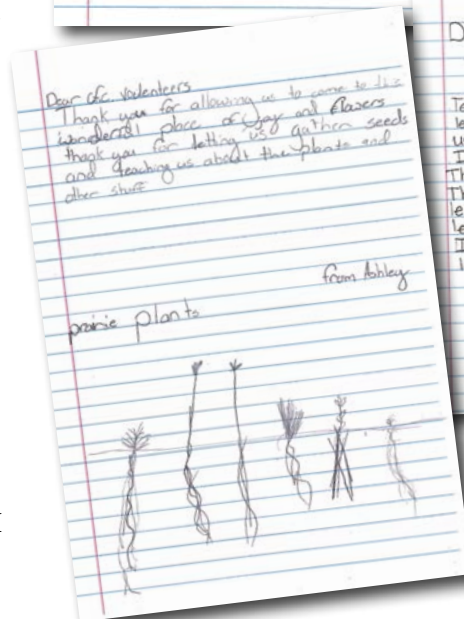 Dear cfc. Vodenteers
Thank you for allowing us to come to this
wonderral place of Joy and flowers
thank you for letting us gather seeds
and teaching us about the plants and
other stuff
from Ashley
prairie plants
D
Te
le
u
I
Th
Th
le
le
I